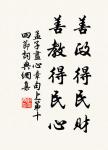 善政得民財
善教得民心
孟子盡心章句上第十
四節詞典網集